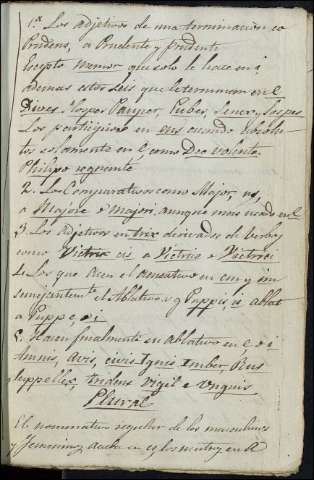 1.ª Los adjetivos de una terminacion co
Prudens, a Prudente y prudenti
Ecepto Memor que solo le hace en i,
ademas estos seis que terminan en e
Dives Hospes Pauper, Puber, Senex y Sospes
Los participios en ens cuando absolu-
tos solamente en e como Deo volente,
Philipo regnante
2. Los Comparativos como Major, us,
a Majore o majori, aunque mas usado en e
3. Los Adjetivos en trix derivados de verbos
como Victrix cis a Victrice o Victrici
4. Los que acen el acusativo en em y im
el Ablativo v g Puppis, is ablat
a Puppe o i
5. Hacen finalmente en ablativo en e o i
Amnis, Avis, civis Ignis Imber, Rus
suppellex, tridens Vigil e Unguis
Plural
El nominativo regular de los masculinos
y femeninos acaba en es los neutros en a